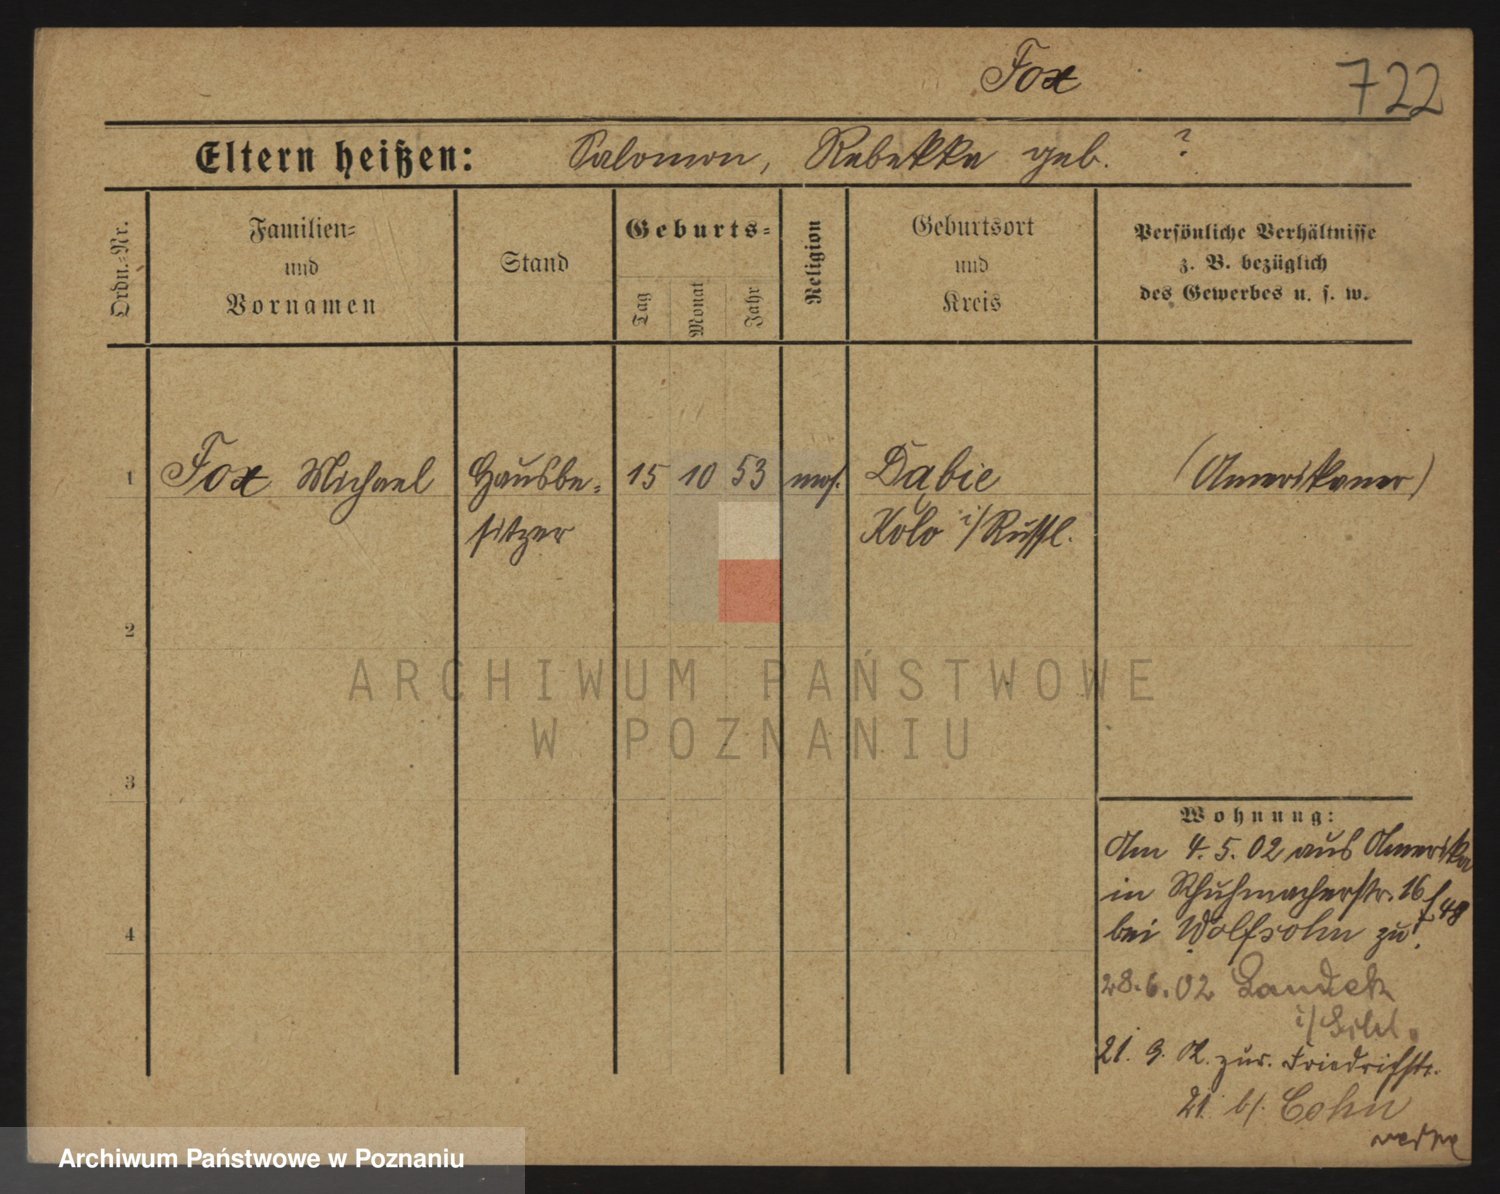 Fox
722
Eltern heißen: Salomon, Rebekka geb. ?
Ordn.-Nr.
Familien- und Vornamen
Stand
Geburts-
Tag
Monat
Jahr
Religion
Geburtsort und Kreis
Persönliche Verhältnisse z. B. bezüglich des Gewerbes u. s. w.
1 Fox Michael Hausbe- 15 10 53 mos. Dąbie (Amerikaner)
sitzer Kolo i/Russl.
2
ARCHIWUM PAŃSTWOWE
W POZNANIU
3
Wohnung:
Am 4. 5. 02 aus Amerika
in Schuhmacherstr. 16
f 48
4
bei Wolfsohn zu.
28. 6. 02 Landeck
i/Schl.
21. 9. 02. zur. Friedrichstr.
21 b/. Cohn
Archiwum Państwowe w Poznaniu